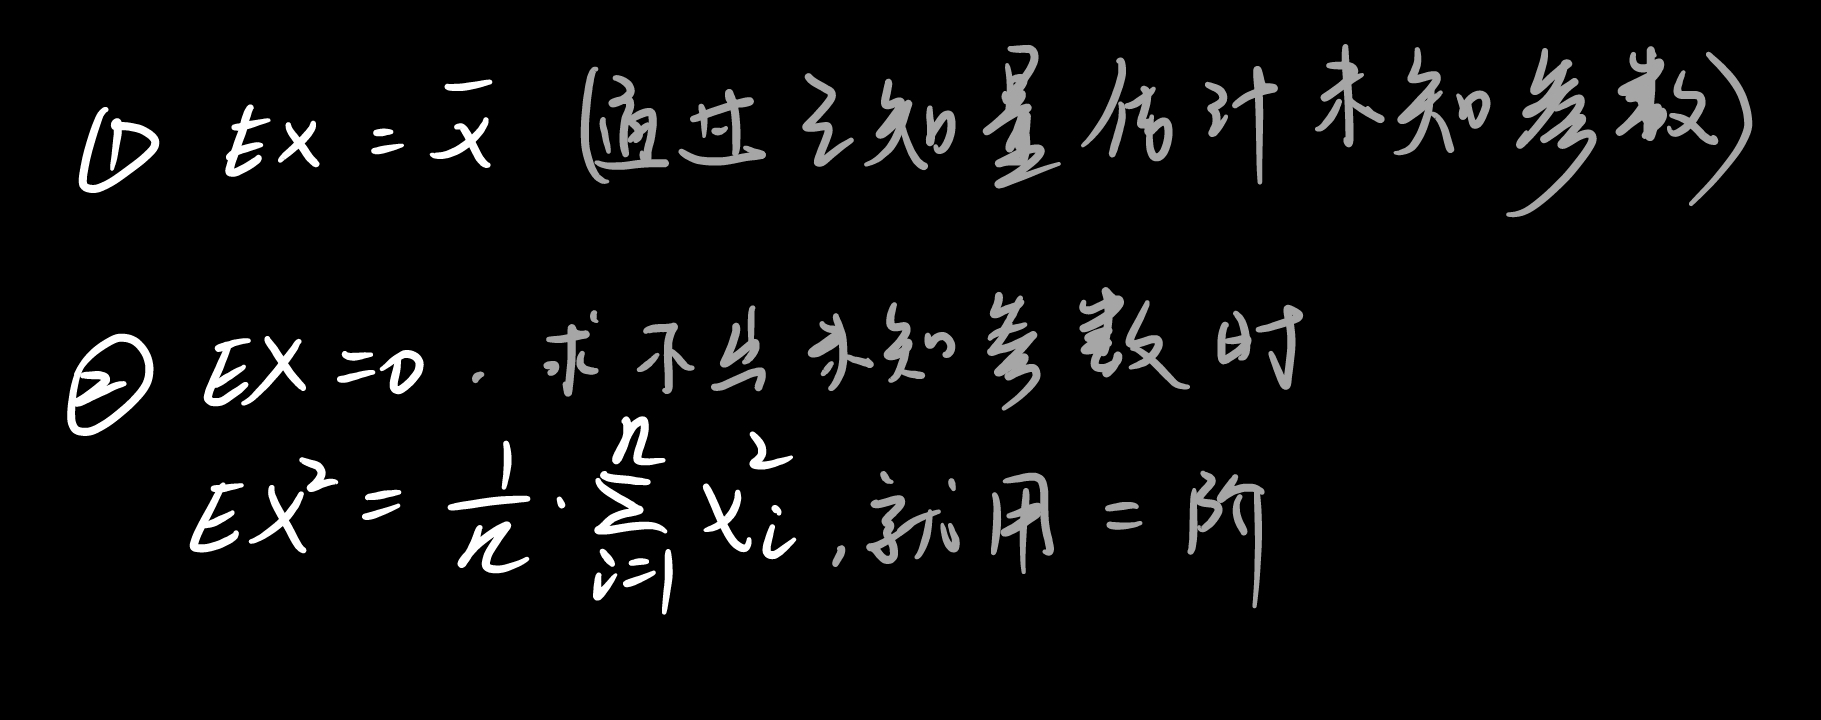 ① EX = x̄ (通过已知量估计未知参数)
② EX=0. 求不出未知参数时
EX² = 1/n · ∑ⁿᵢ₌₁ xᵢ², 就用二阶